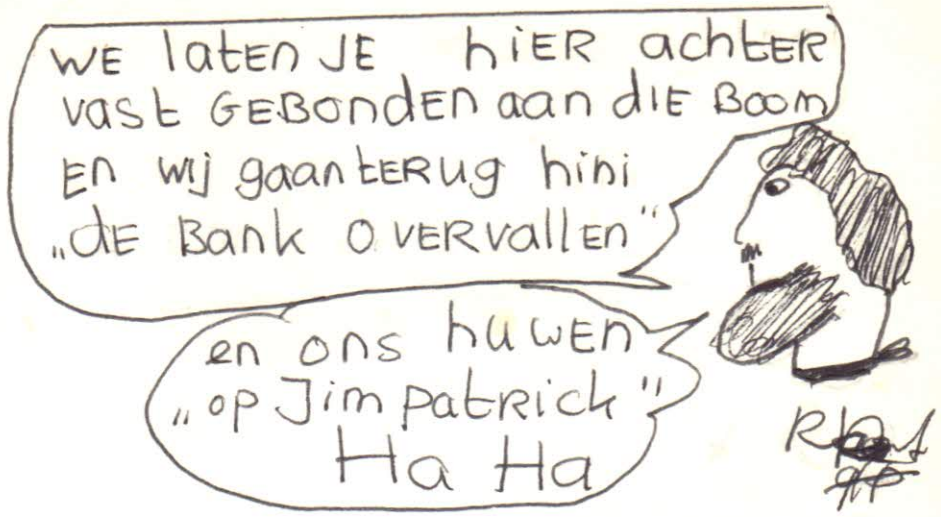 WE laten JE hiER achtER
vast GEBondEn aan diE Boom
En wij gaan tERug hihi
„dE Bank OVERVallEn"
en ons huwen
„op Jim patrick"
Ha Ha